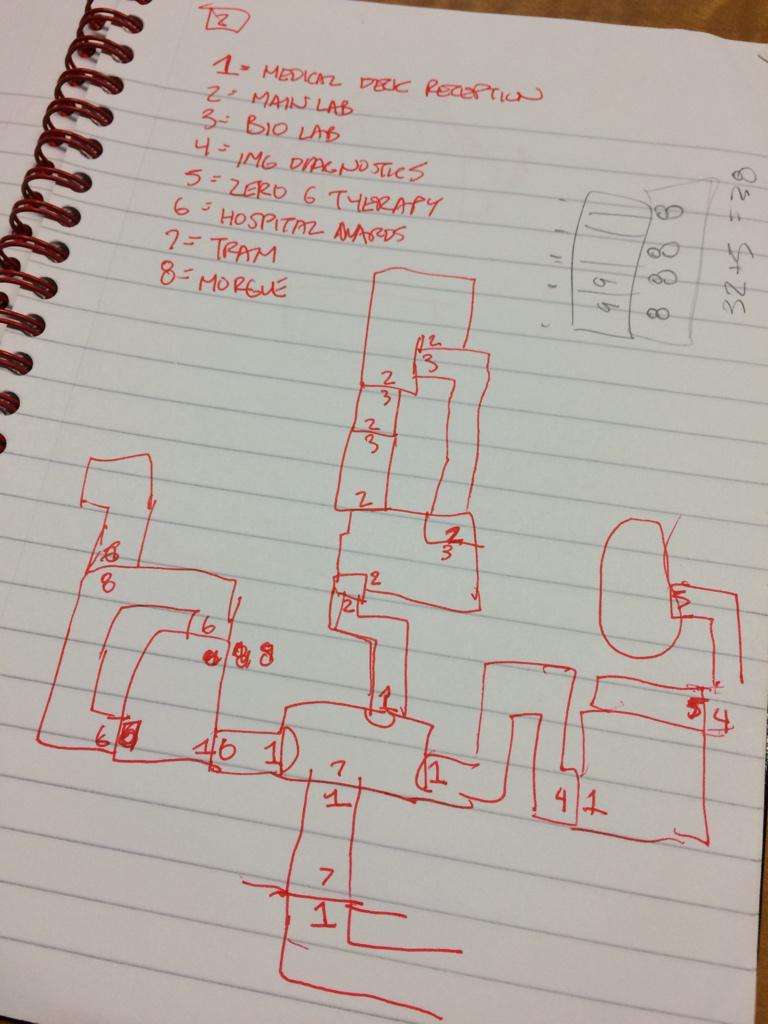 2
1 = MEDICAL DECK RECEPTION
2 = MAIN LAB
3 = BIO LAB
4 = IMG DIAGNOSTICS
5 = ZERO G THERAPY
6 = HOSPITAL WARDS
7 = TRAM
8 = MORGUE
9 9 11
8 8 8 8
32+5 = 38
2
3
2
3
2
3
2
2
3
2
2
8
6
8
6
1 6 1
1
7
1
1
7
1
5
5 4
4 1